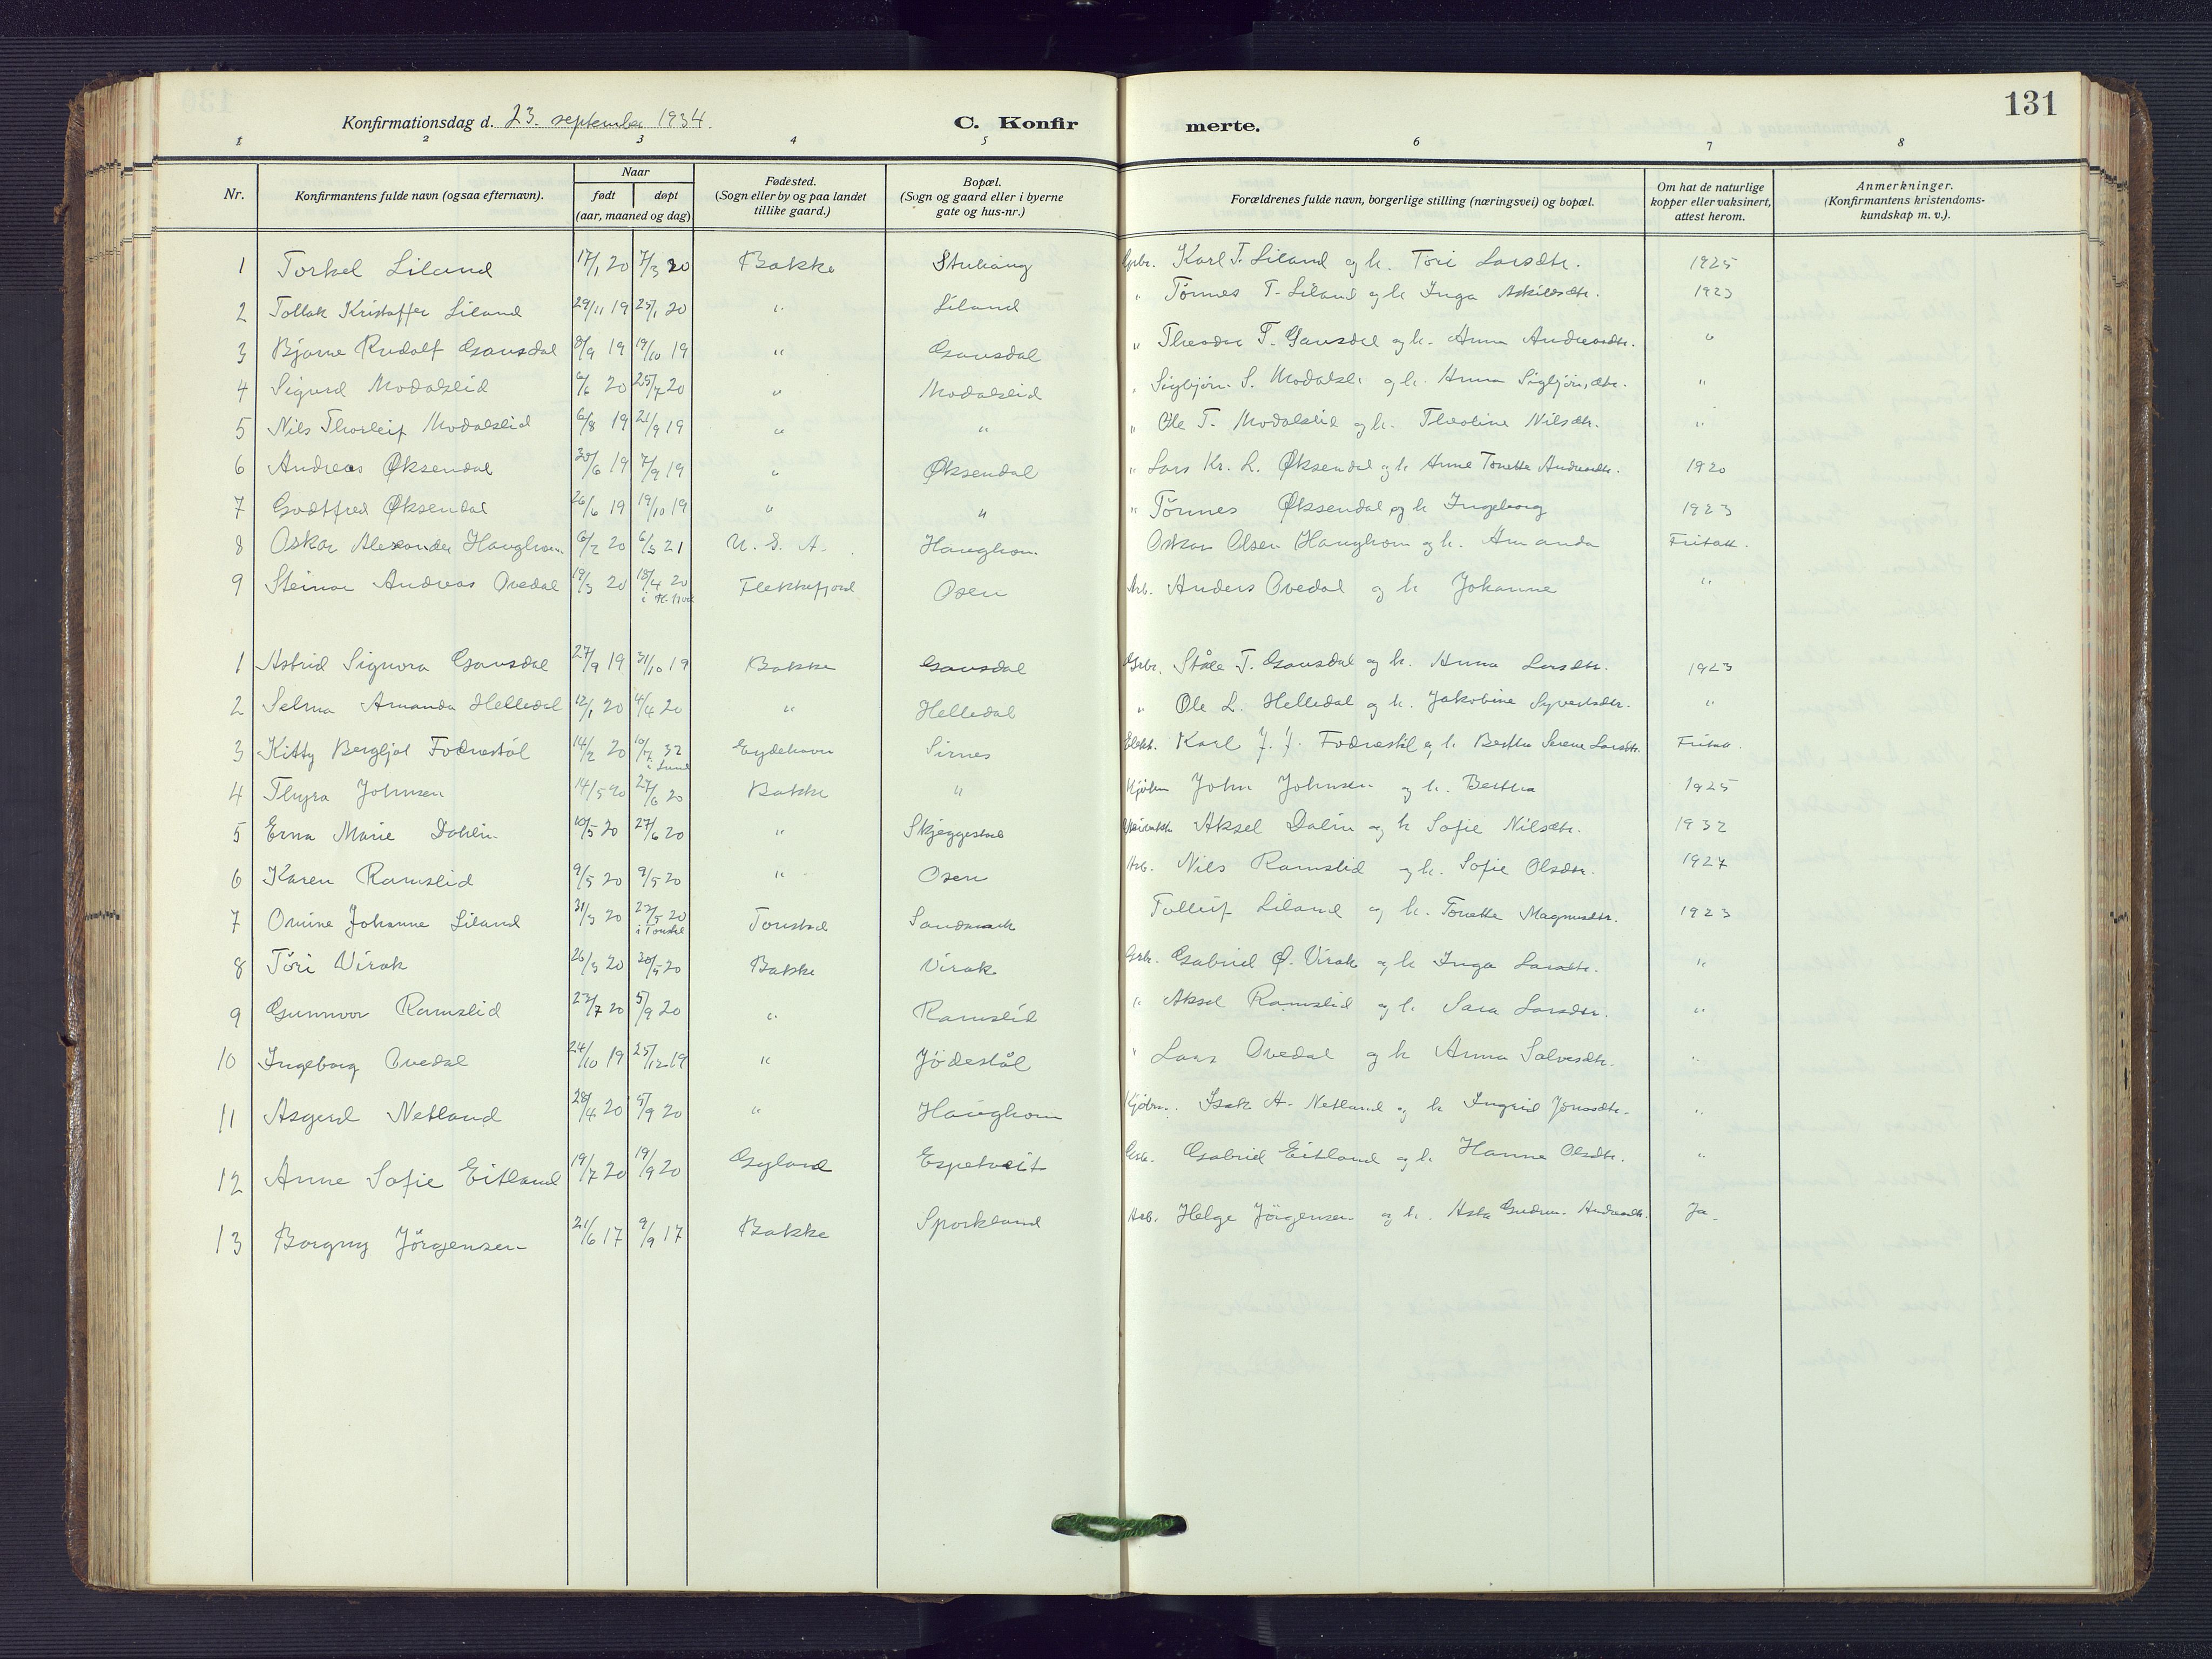 131
Konfirmationsdag d. 23. september 1934.
C. Konfir merte.
1 2 3 4 5 6 7 8
Nr. Konfirmantens fulde navn (ogsaa efternavn). Naar født døpt (aar, maaned og dag) Fødested. (Sogn eller by og paa landet tillike gaard.) Bopæl. (Sogn og gaard eller i byerne gate og hus-nr.) Forældrenes fulde navn, borgerlige stilling (næringsvei) og bopæl. Om hat de naturlige kopper eller vaksinert, attest herom. Anmerkninger. (Konfirmantens kristendoms-kundskap m. v.).
1 Torkel Liland 17/1 20 7/3 20 Bakke Gbr. Karl T. Liland og h. Töri Larsdtr. 1925
2 Tollak Kristoffer Liland 29/11 19 25/1 20 " Liland " Tönnes T. Liland og h. Inga Askildsdtr. 1923
3 Bjarne Rudolf Gausdal 8/9 19 19/10 19 " Gausdal " Theodor T. Gausdal og h. Anna Andreasdtr. "
4 Sigurd Modalslid 6/6 20 25/7 20 " Modalslid " Sigbjörn S. Modalsli og h. Anna Sigbjörnsdtr. "
5 Nils Thorleif Modalslid 6/8 19 21/9 19 " " " Ole T. Modalslid og h. Theoline Nilsdtr. "
6 Andreas Øksendal 30/6 19 7/9 19 " Øksendal " Lars Kr. L. Øksendal og h. Anne Tonette Andreasdtr. 1920
7 Godtfred Øksendal 26/6 19 19/10 19 " " " Tönnes Øksendal og h. Ingeborg 1923
8 Oskar Alexander Haughom 6/2 20 6/3 21 U. S. A. Haughom Oskar Olsen Haughom og h. Amanda Fritatt.
9 Steinar Andreas Ovedal 19/3 20 18/4 20 Flekkefjord Osen Arb. Anders Ovedal og h Johanne "
1 Astrid Signora Gausdal 27/9 19 31/10 19 Bakke Gausdal Gbr. Ståle T. Gausdal og h. Anna Larsdtr. 1923
2 Selma Amanda Helledal 12/1 20 4/4 20 " Helledal " Ole L. Helledal og h. Jakobine Syvertsdtr. "
3 Kitty Bergljot Fodnestöl 14/2 20 10/7 32 i Lund Eydehavn Sirnes Karl J. J. Fodnestöl og h. Bertha Serene Larsdtr. Fritatt.
4 Thyra Johnsen 14/5 20 27/6 20 Bakke " Kjöbm John Johnsen og h. Bertha 1925
5 Erna Marie Dahlin 10/5 20 27/6 20 " Skjeggestad Aksel Dalin og h Sofie Nilsdtr. 1932
6 Karen Ramslid 9/5 20 9/5 20 " Osen Arb. Nils Ramslid og h. Sofie Olsdtr. 1927
7 Omine Johanne Liland 31/3 20 23/5 20 i Tonstad Tonstad Sandsmark Tolleif Liland og h. Tonette Magnusdtr. 1923
8 Töri Virak 26/3 20 30/5 20 Bakke Virak Gbr. Gabriel O. Virak og h Inga Larsdtr. "
9 Gunnvor Ramslid 23/7 20 5/9 20 " Ramslid " Aksel Ramslid og h. Sara Larsdtr. "
10 Ingeborg Ovedal 24/10 19 25/12 19 " Jödestöl " Lars Ovedal og h Anna Salvesdtr. "
11 Asgerd Netland 28/4 20 5/9 20 " Haughom Kjöbm. Isak A. Netland og h Ingrid Jonasdtr. "
12 Anne Sofie Eitland 19/7 20 19/9 20 Gyland Espetveit Gbr. Gabriel Eitland og h. Hanne Olsdtr. "
13 Borgny Jörgensen 21/6 17 9/9 17 Bakke Sporkland Arb. Helge Jörgensen og h. Asta Gudrun Andreasdtr. Ja.